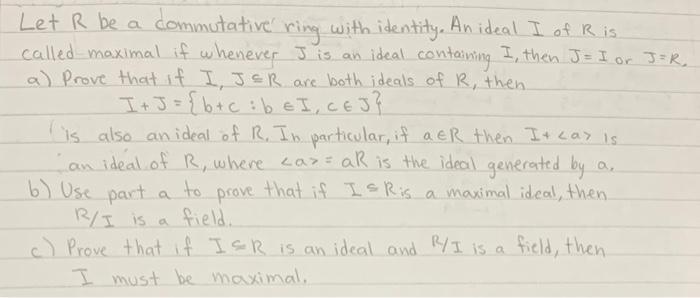 Let R be a commutative ring with identity. An ideal I of R is
called maximal if whenever J is an ideal containing I, then J = I or J = R.
a) Prove that if I, J ⊆ R are both ideals of R, then
I + J = {b + c : b ∈ I, c ∈ J}
is also an ideal of R. In particular, if a ∈ R then I + <a> is
an ideal of R, where <a> = aR is the ideal generated by a.
b) Use part a to prove that if I ⊆ R is a maximal ideal, then
R/I is a field.
c) Prove that if I ⊆ R is an ideal and R/I is a field, then
I must be maximal.